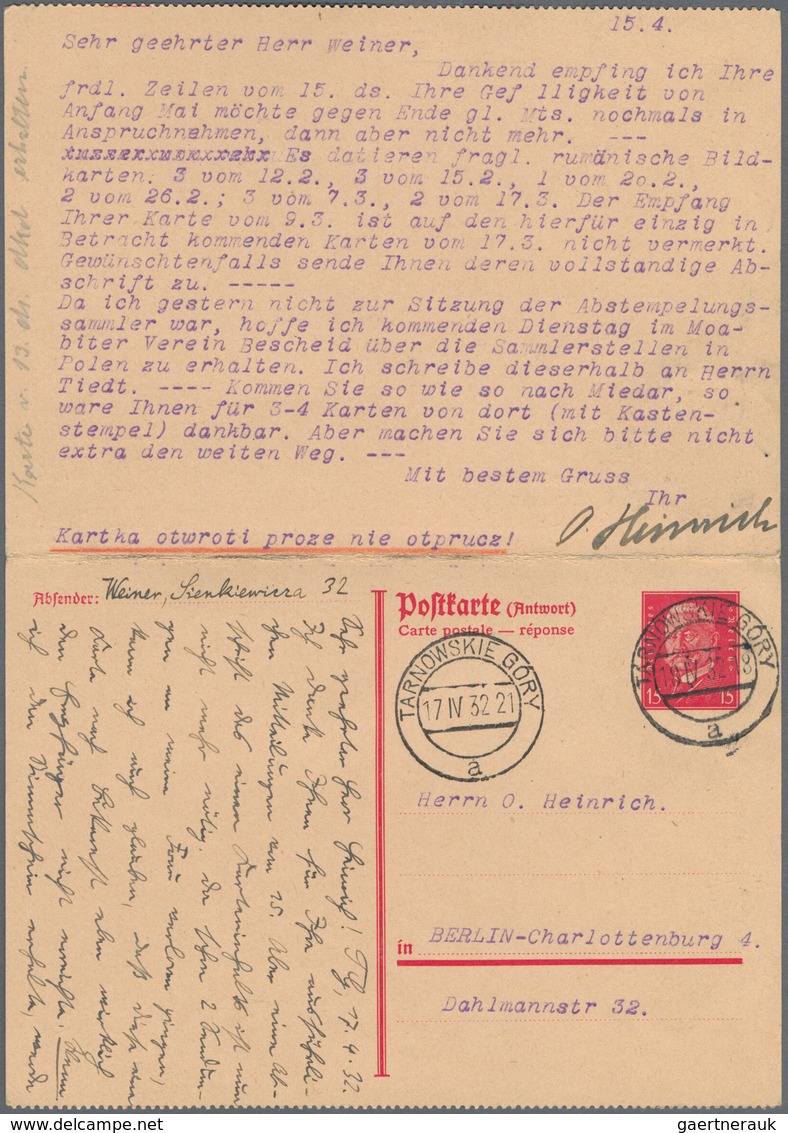 15.4.
Sehr geehrter Herr Weiner,
Dankend empfing ich Ihre
frdl. Zeilen vom 15. ds. Ihre Gef lligkeit von
Anfang Mai möchte gegen Ende gl. Mts. nochmals in
Anspruchnahmen, dann aber nicht mehr. ---
Es datieren fragl. rumänische Bild-
karten: 3 vom 12.2., 3 vom 15.2., 1 vom 20.2.,
2 vom 26.2.; 3 vom 7.3., 2 vom 17.3. Der Empfang
Ihrer Karte vom 9.3. ist auf den hierfür einzig in
Betracht kommenden Karten vom 17.3. nicht vermerkt.
Gewünschtenfalls sende Ihnen deren vollstandige Ab-
schrift zu. -----
Da ich gestern nicht zur Sitzung der Abstempelungs-
sammler war, hoffe ich kommenden Dienstag im Moa-
biter Verein Bescheid über die Sammlerstellen in
Polen zu erhalten. Ich schreibe dieserhalb an Herrn
Tiedt. ---- Kommen Sie so wie so nach Miedar, so
ware Ihnen für 3-4 Karten von dort (mit Kasten-
stempel) dankbar. Aber machen Sie sich bitte nicht
extra den weiten Weg. ---
Mit bestem Gruss
Ihr
O. Heinrich
Kartka otwroti proze nie otprucz!
Karte v. 13. ds. erhalten.
Absender: Weiner, Sienkiewicza 32
Postkarte (Antwort)
Carte postale — réponse
15 15
TARNOWSKIE GÓRY
17 IV 32 21
a
TARNOWSKIE GÓRY
18 IV 32 8
a
Herrn O. Heinrich.
in BERLIN-Charlottenburg 4.
Dahlmannstr 32.
Sehr geehrter Herr Heinrich! TG, 17.4.32.
Ich danke Ihnen für Ihre ausführli-
chen Mitteilungen vom 15. Aber eine Ab-
schrift des einen Karteninhalts ist nun
nicht mehr nötig. da schon 2 Sendun-
gen an meine Frau verloren gingen,
kann ich auch glauben, daß diese eine
Karte nach eben wirklich
den Empfänger nicht erreichte. Wenn
ich den erhalte, werde
gaertnerauk